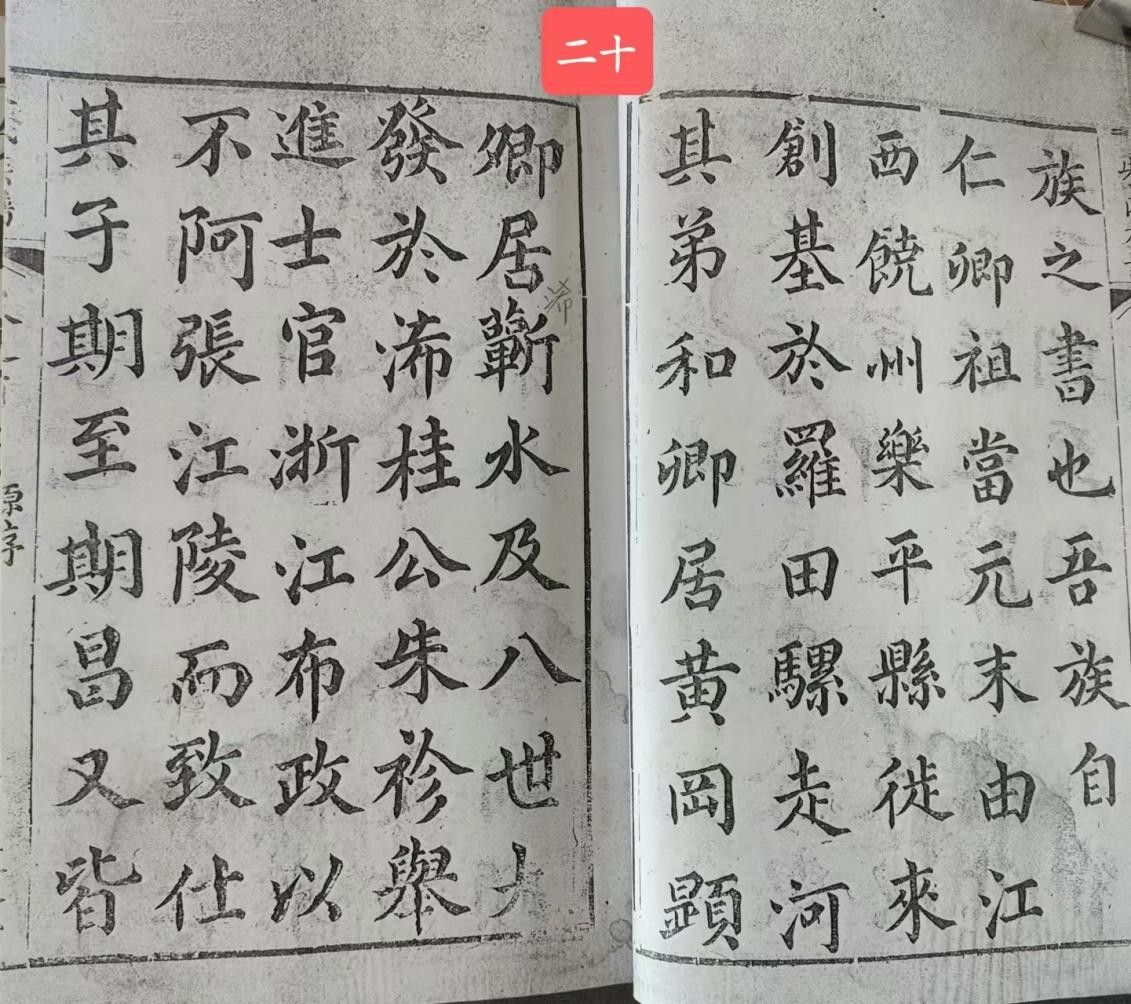 二十
族之書也吾族自
仁卿祖當元末由江
西饒州樂平縣徙來
創基於羅田騾走河
其弟和卿居黃岡顕
卿居蘄水及八世大
浠
發於浠桂公朱袗舉
進士官浙江布政以
不阿張江陵而致仕
其子期至期昌又皆
原序